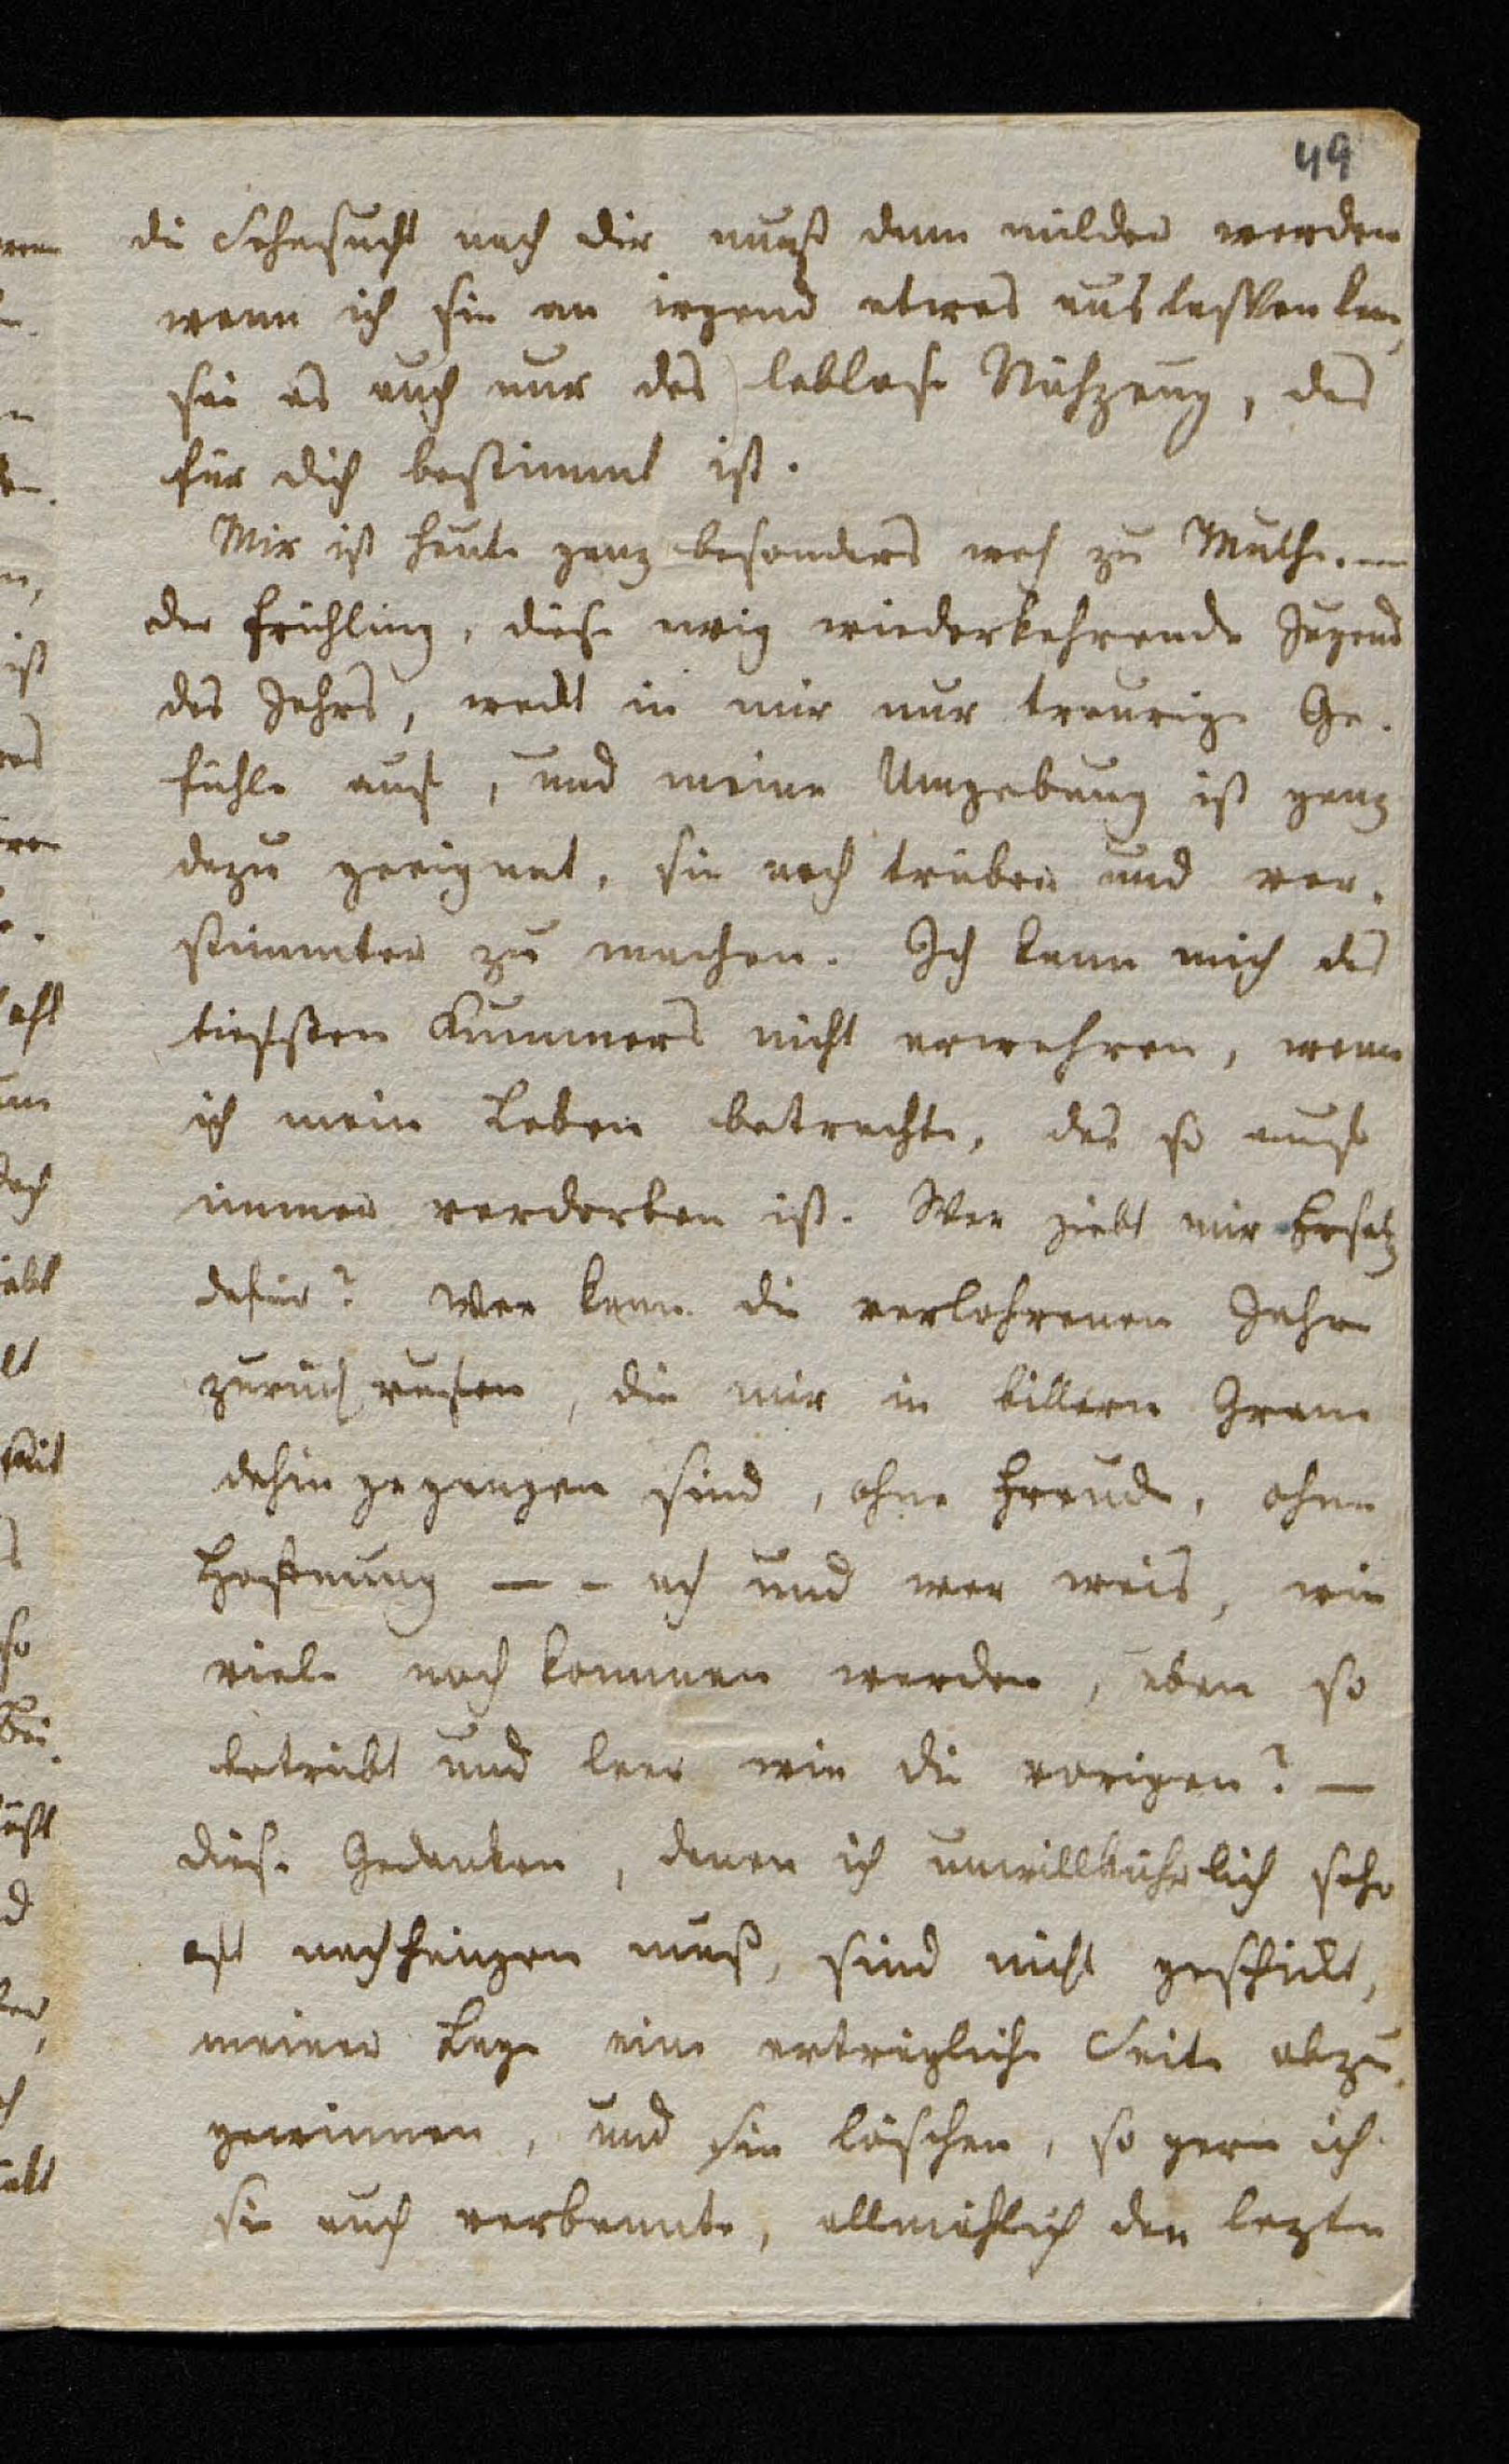 49
die Sehnsucht nach dir muß dann milder werden
wenn ich sie an irgend etwas auslassen kan,
sei es auch nur das leblose Nähzeug, das
für dich bestimmt ist.
Mir ist heute ganz besonders weh zu Muthe. —
der Frühling, diese ewig wiederkehrende Jugend
des Jahrs, wekt in mir nur traurige Ge-
fühle auf, und meine Umgebung ist ganz
dazu geeignet, sie noch trüber und ver-
stimmter zu machen. Ich kann mich des
tiefsten Kummers nicht erwehren, wenn
ich mein Leben betrachte, das so auf
immer verdorben ist. Wer giebt mir Ersatz
dafür? Wer kann die verlohrenen Jahre
zurück rufen, die mir in bitterm Gram
dahin gegangen sind, ohne Freude, ohne
Hoffnung — - ach und wer weis, wie
viele noch kommen werden, eben so
betrübt und leer wie die vorigen? —
diese Gedanken, denen ich unwillkührlich sehr
oft nachhängen muß, sind nicht geschikt,
meiner Lage eine erträgliche Seite abzu-
gewinnen, und sie löschen, so gern ich
sie auch verbannte, allmählich den lezten